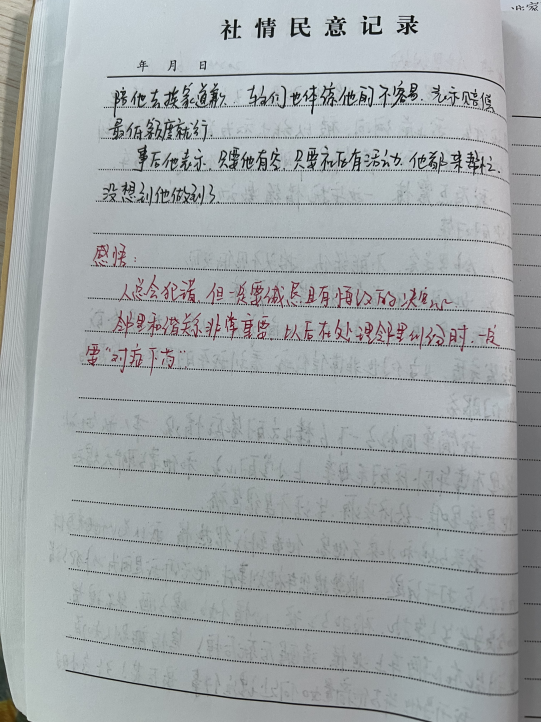 社情民意记录
年 月 日
陪他去挨家道歉。车主们也体谅他的不容易,表示赔偿
最低额度就行.
事后他表示,只要他有空,只要社区有活动,他都来帮忙.
没想到他做到了
感悟:
人总会犯错,但一定要诚恳且有悔改的决心.
邻里和谐关系非常重要,以后在处理邻里纠纷时,一定
要“对症下药”